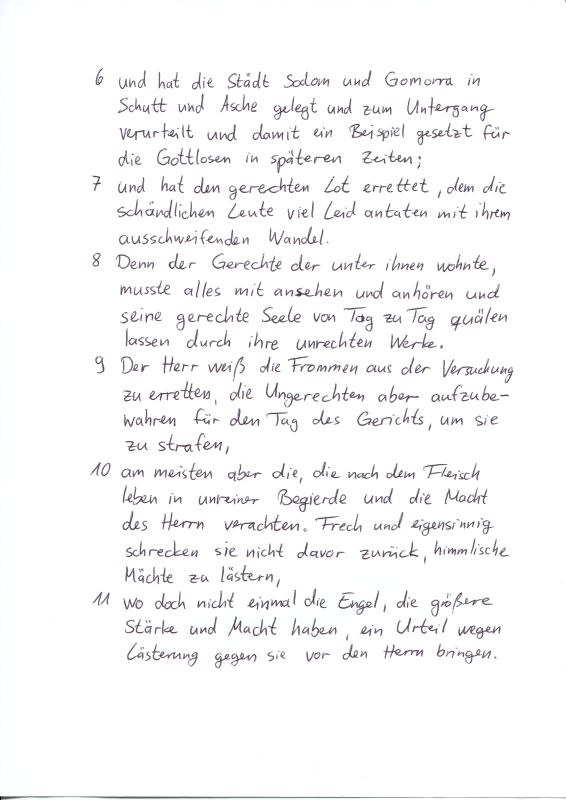 6 und hat die Städt Sodom und Gomorra in
Schutt und Asche gelegt und zum Untergang
verurteilt und damit ein Beispiel gesetzt für
die Gottlosen in späteren Zeiten;
7 und hat den gerechten Lot errettet, dem die
schändlichen Leute viel Leid antaten mit ihrem
ausschweifenden Wandel.
8 Denn der Gerechte der unter ihnen wohnte,
musste alles mit ansehen und anhören und
seine gerechte Seele von Tag zu Tag quälen
lassen durch ihre unrechten Werke.
9 Der Herr weiß die Frommen aus der Versuchung
zu erretten, die Ungerechten aber aufzube-
wahren für den Tag des Gerichts, um sie
zu strafen,
10 am meisten aber die, die nach dem Fleisch
leben in unreiner Begierde und die Macht
des Herrn verachten. Frech und eigensinnig
schrecken sie nicht davor zurück, himmlische
Mächte zu lästern,
11 wo doch nicht einmal die Engel, die größere
Stärke und Macht haben, ein Urteil wegen
Lästerung gegen sie vor den Herrn bringen.